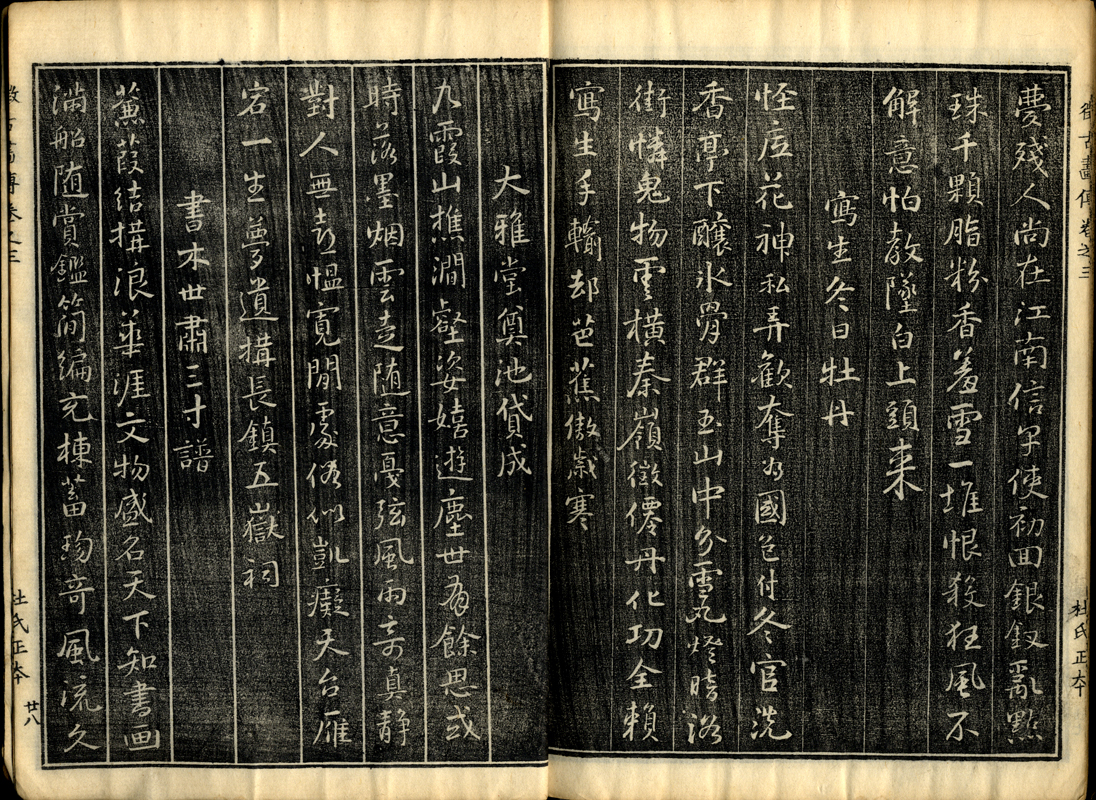 徵古畫傳卷之三
杜氏正本
夢殘人尚在江南信字使初回銀釵亂點
珠千顆脂粉香羞雪一堆恨殺狂風不
解意怕教墜白上頭来
寫生冬日牡丹
恠底花神私弄歡奪為國色付冬官洗
香亭下釀氷骨群玉山中分雪丸燈暗浴
街憐鬼物雲橫秦嶺徵僊丹化功全賴
寫生手輸却芭蕉傲歲寒
大雅堂奠池貸成
九霞山樵澗壑姿嬉遊塵世有餘思或
時落墨烟雲走随意戞弦風雨奇真靜
對人無喜慍寬閒處俗似凱癡天台雁
宕一生夢遺構長鎮五嶽祠
書木世肅三寸譜
蒹葭結構浪華涯文物盛名天下知書画
滿船随賞鑑簡編充棟蓄珎奇風流久
卷之三
杜氏正本
廿八